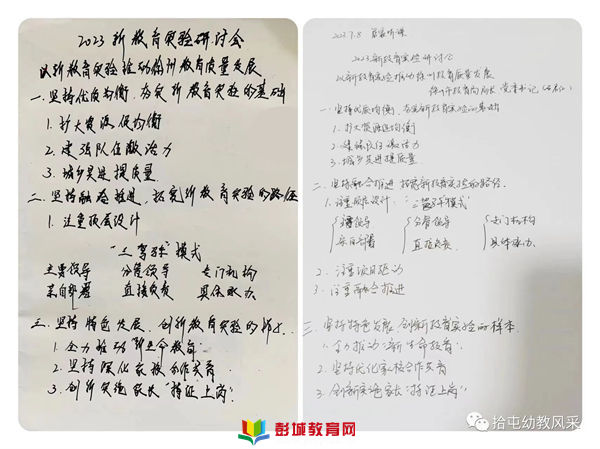 2023新教育实验研讨会
以新教育实验推动徐州教育质量发展
一、坚持优质均衡,夯实新教育实验的基础
1.扩大资源促均衡
2.建强队伍激活力
3.城乡共进提质量
二、坚持融合推进,拓宽新教育实验的路径
1.注重顶层设计
"三驾马车"模式
主要领导 分管领导 专门机构
亲自部署 直接负责 具体承办
三、坚持特色发展,创新新教育实验的样本
1.全力推动"新生命教育"
2.坚持深化家校合作共育
3.创新实施家长"持证上岗"
2023.7.8
2023新教育实验研讨会
以新教育实验推动徐州教育质量发展
徐州市教育局局长 党委书记
一、坚持优质均衡,夯实新教育实验的基础
1.扩大资源促均衡
2.建强队伍激活力
3.城乡共进提质量
二、坚持融合推进 拓宽新教育实验的路径
1.注重顶层设计 "三驾马车模式"
主要领导 分管领导 专门机构
亲自部署 直接负责 具体承办
2.注重项目驱动
3.注重融合推进
三、坚持特色发展 创新新教育实验的样本
1.全力推动"新生命教育"
2.坚持优化家校合作共育
3.创新实施家长"持证上岗"
彭城教育网
拾屯幼教风采